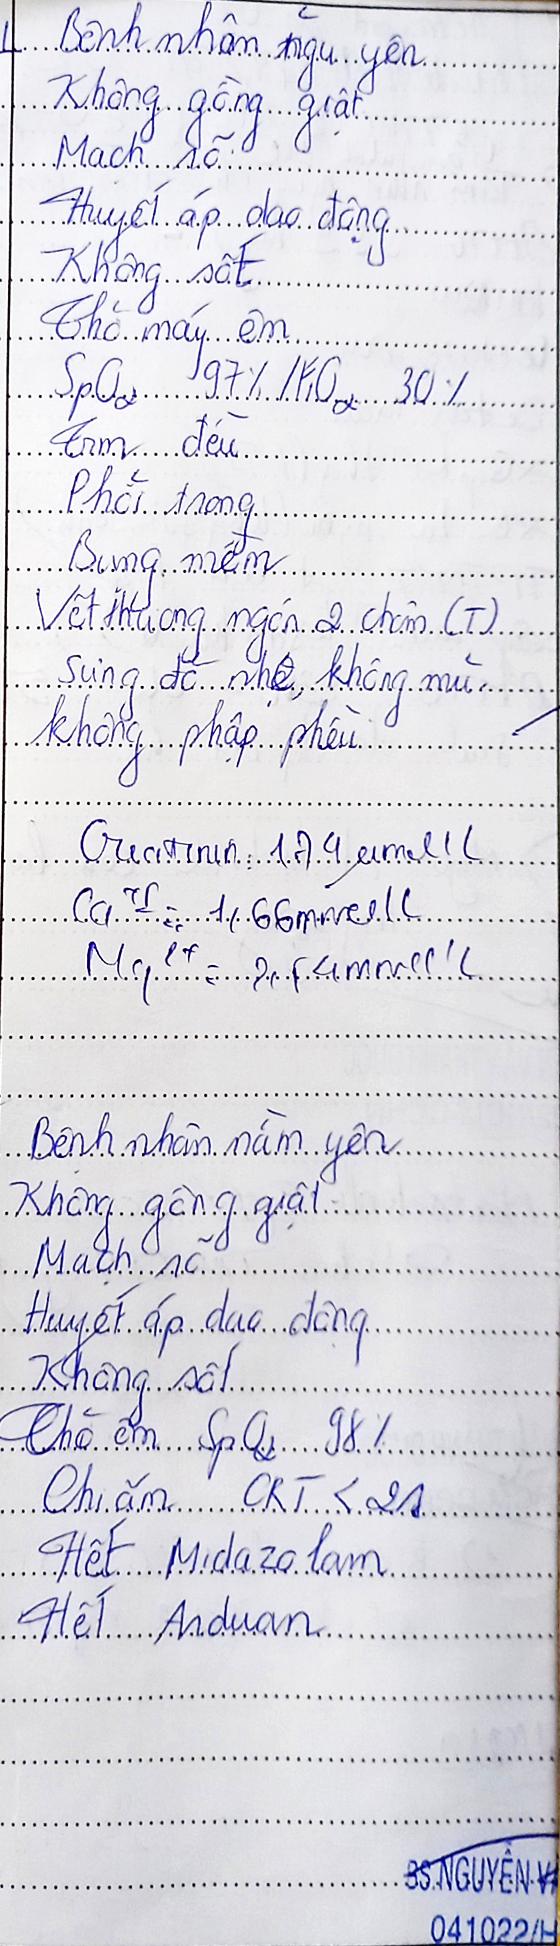 Bệnh nhân ngủ yên
Không gồng giật
Mạch rõ
Huyết áp dao động
Không sốt
Thở máy êm
SpO2 97% / FiO2 30%
Tim đều
Phổi trong
Bụng mềm
Vết thương ngón 2 chân (T)
Sưng đỏ nhẹ, không mủ
không phập phều
Creatinin: 174 µmol/L
Ca = 1,66 mmol/L
Mg2+ = mmol/L
Bệnh nhân nằm yên
Không gồng giật
Mạch rõ
Huyết áp dao động
Không sốt
Thở êm SpO2 98%
Chi ấm CRT < 2s
Hết Midazolam
Hết Arduan
BS.NGUYỄN
041022/H